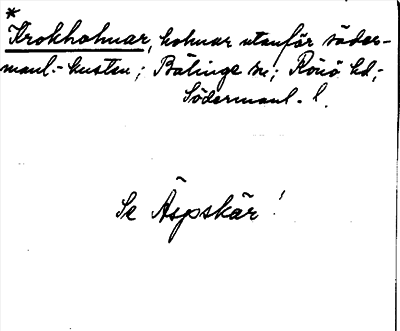 *
Krokholmar, holmar utanför söder-
manl.-kusten; Bälinge sn; Rönö hd,
Södermanl. l.
Se Äspskär!